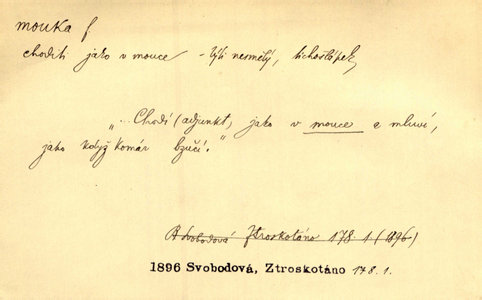 mouka f
choditi jako v mouce - býti nesmělý, tichošlápek
"... Chodí (adjunkt) jako v mouce a mluví,
jako když komár bzučí."
Svobodová Ztroskotáno 178. 1 (1896)
1896 Svobodová, Ztroskotáno 178. 1.